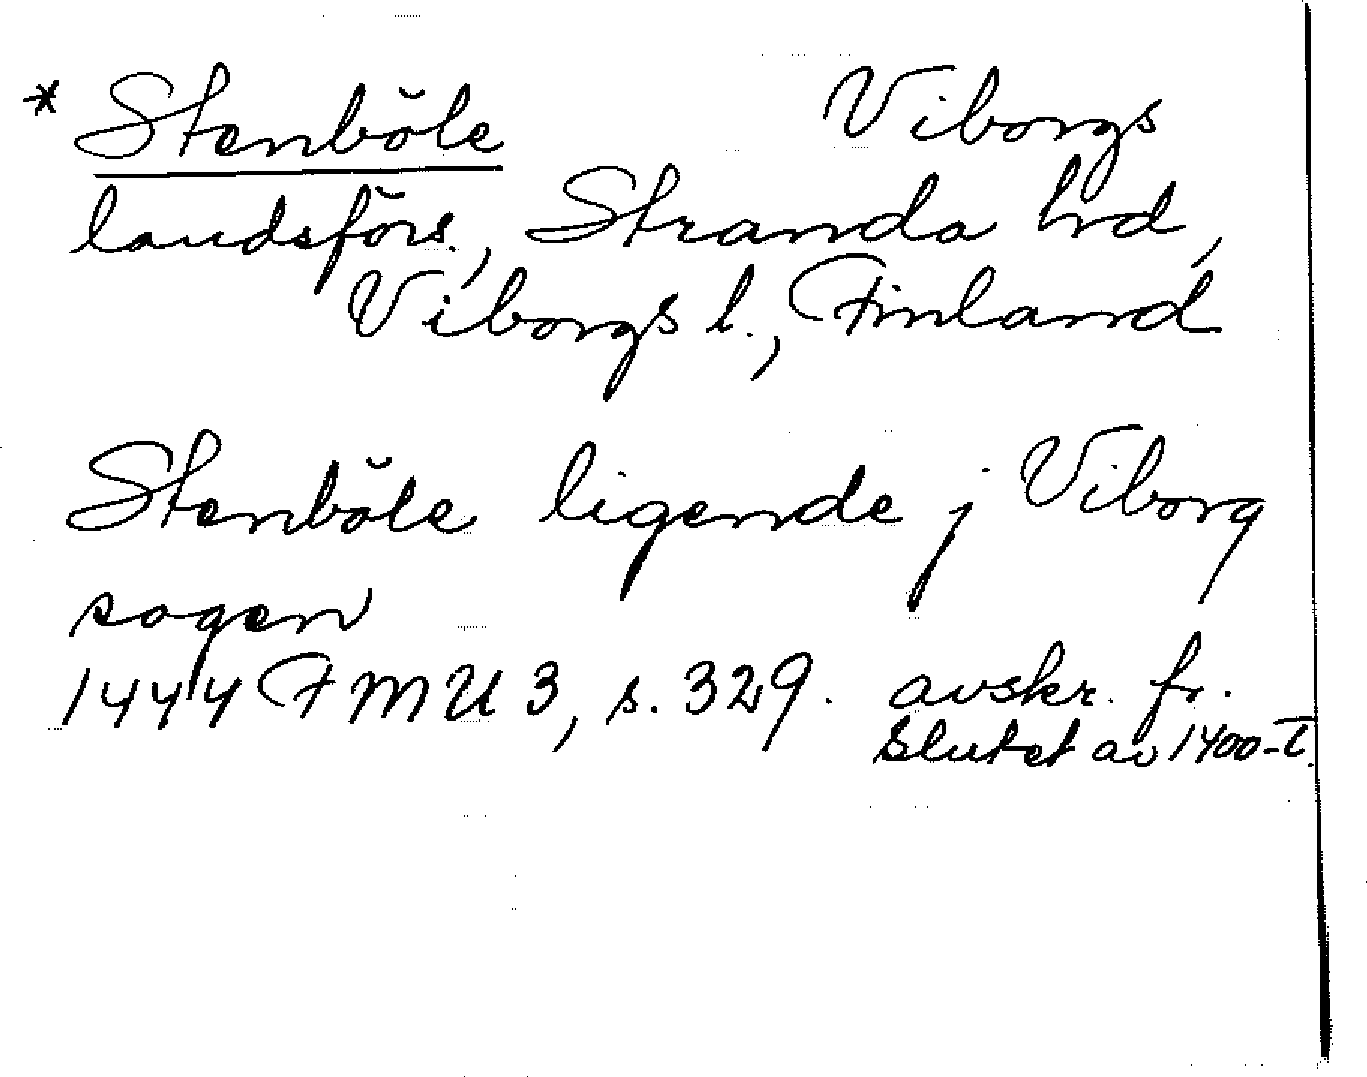 * Stenböle Viborgs
landsförs., Stranda hrd,
Viborgs l., Finland
Stenböle ligende j Viborg
sogen
1444 FMU 3, s. 329. avskr. fr.
slutet av 1400-t.